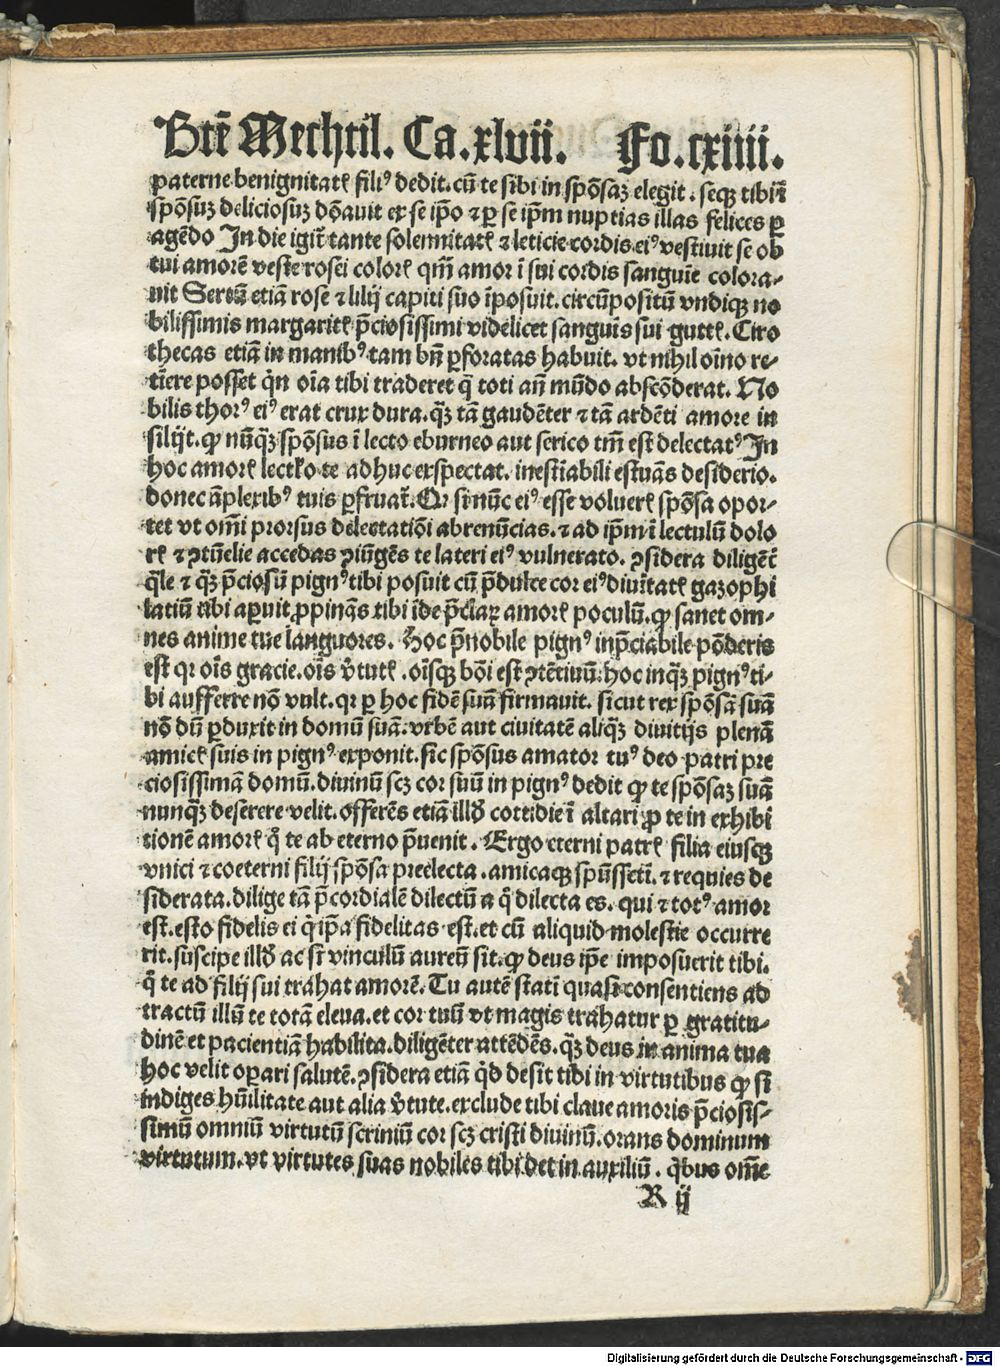 Btē Mechtil. Ca.xlvii. Fo.cxiiii.
paterne benignitatꝭ filiꝰ dedit. cū te sibi in spōsaꝫ elegit. seqꝫ tibi ī
spōsuꝫ deliciosuꝫ dōauit ex se ip̄o ⁊ ꝑ se ip̄m nuptias illas felices ꝑ
agēdo In die igit᷑ tante solennitatꝭ ⁊ leticie cordis eiꝰ vestiuit se ob
tui amorē veste rosei colorꝭ qm̄ amor ī sui cordis sanguīe colora-
uit Sertū etiā rose ⁊ lilij capiti suo īposuit. circūpositū vndiqꝫ no
bilissimis margaritꝭ p̄ciosissimi videlicet sanguīs sui guttꝭ. Ciro
thecas etiā in manibꝰ tam bn̄ ꝑforatas habuit. vt nihil oīno re-
tīere posset q̇n oīa tibi traderet q̄ toti an̄ mūdo abscōderat. No
bilis thorꝰ eiꝰ erat crux dura. q̄ꝫ tā gaudēter ⁊ tā ardēti amore in
silijt. ꝙ nūq̄ꝫ spōsus ī lecto eburneo aut serico tm̄ est delectatꝰ In
hoc amorꝭ lectło te adhuc exspectat. inestīabili estuās desiderio.
donec āplexibꝰ tuis ꝑfruat᷑. Qr si nūc eiꝰ esse voluerꝭ spōsa opor-
tet vt om̄i prorsus delectatiōi abrenūcias. ⁊ ad ip̄m ī lectulū dolo
rꝭ ⁊ ꝯtūelie accedas ꝯiūgēs te lateri eiꝰ vulnerato. ꝯsidera diligēt᷑
q̄le ⁊ q̄ꝫ p̄ciosū pignꝰ tibi posuit cū p̄dulce cor eiꝰ diuitatꝭ gazophi
latiū tibi aꝑuit ꝓpinās tibi īde p̄claꝝ amorꝭ poculū. ꝙ sanet om-
nes anime tue languores. Hoc p̄nobile pignꝰ inp̄ciabile pōderis
est qr oīs gracie. oīs v̄tutꝭ. oīsqꝫ bōi est ꝯtētiuū: hoc inq̄ꝫ pignꝰ ti-
bi aufferre nō vult. qr ꝑ hoc fidē suā firmauit. sicut rex spōsā suā
nō dū ꝑduxit in domū suā. vrbē aut ciuitatē aliq̄ꝫ diuitijs plenā
amicꝭ suis in pignꝰ exponit. sic spōsus amator tuꝰ deo patri pre
ciosissimā domū. diuinū scꝫ cor suū in pignꝰ dedit ꝙ te spōsaꝫ suā
nunq̄ꝫ deserere velit. offerēs etiā illđ cottidie ī altari ꝓ te in exhibi
tionē amorꝭ q̊ te ab eterno p̄uenit. Ergo eterni patrꝭ filia eiusqꝫ
vnici ⁊ coeterni filij spōsa preelecta. amicaqꝫ spūsscti. ⁊ requies de
siderata. dilige tā p̄cordialē dilectū a q̊ dilecta es. qui ⁊ totꝰ amor
est. esto fidelis ei q̇ ip̄a fidelitas est. et cū aliquid molestie occurre
rit. suscipe illđ ac si vinculū aureū sit. ꝙ deus ip̄e imposuerit tibi.
q̊ te ad filij sui trahat amorē. Tu autē statī quasi consentiens ad
tractū illū te totā eleua. et cor tuū vt magis trahatur ꝑ gratitu-
dinē et pacientiā habilita. diligēter attēdēs. q̄ꝫ deus in anima tua
hoc velit oꝑari salutē. ꝯsidera etiā q̇d desit tibi in virtutibus ꝙ si
indiges hūilitate aut alia v̄tute. exclude tibi claue amoris p̄ciosis-
simū omniū virtutū scriniū cor scꝫ cristi diuinū. orans dominum
virtutum. vt virtutes suas nobiles tibi det in auxiliū. q̇bus om̄e
R ij
Digitalisierung gefördert durch die Deutsche Forschungsgemeinschaft - DFG